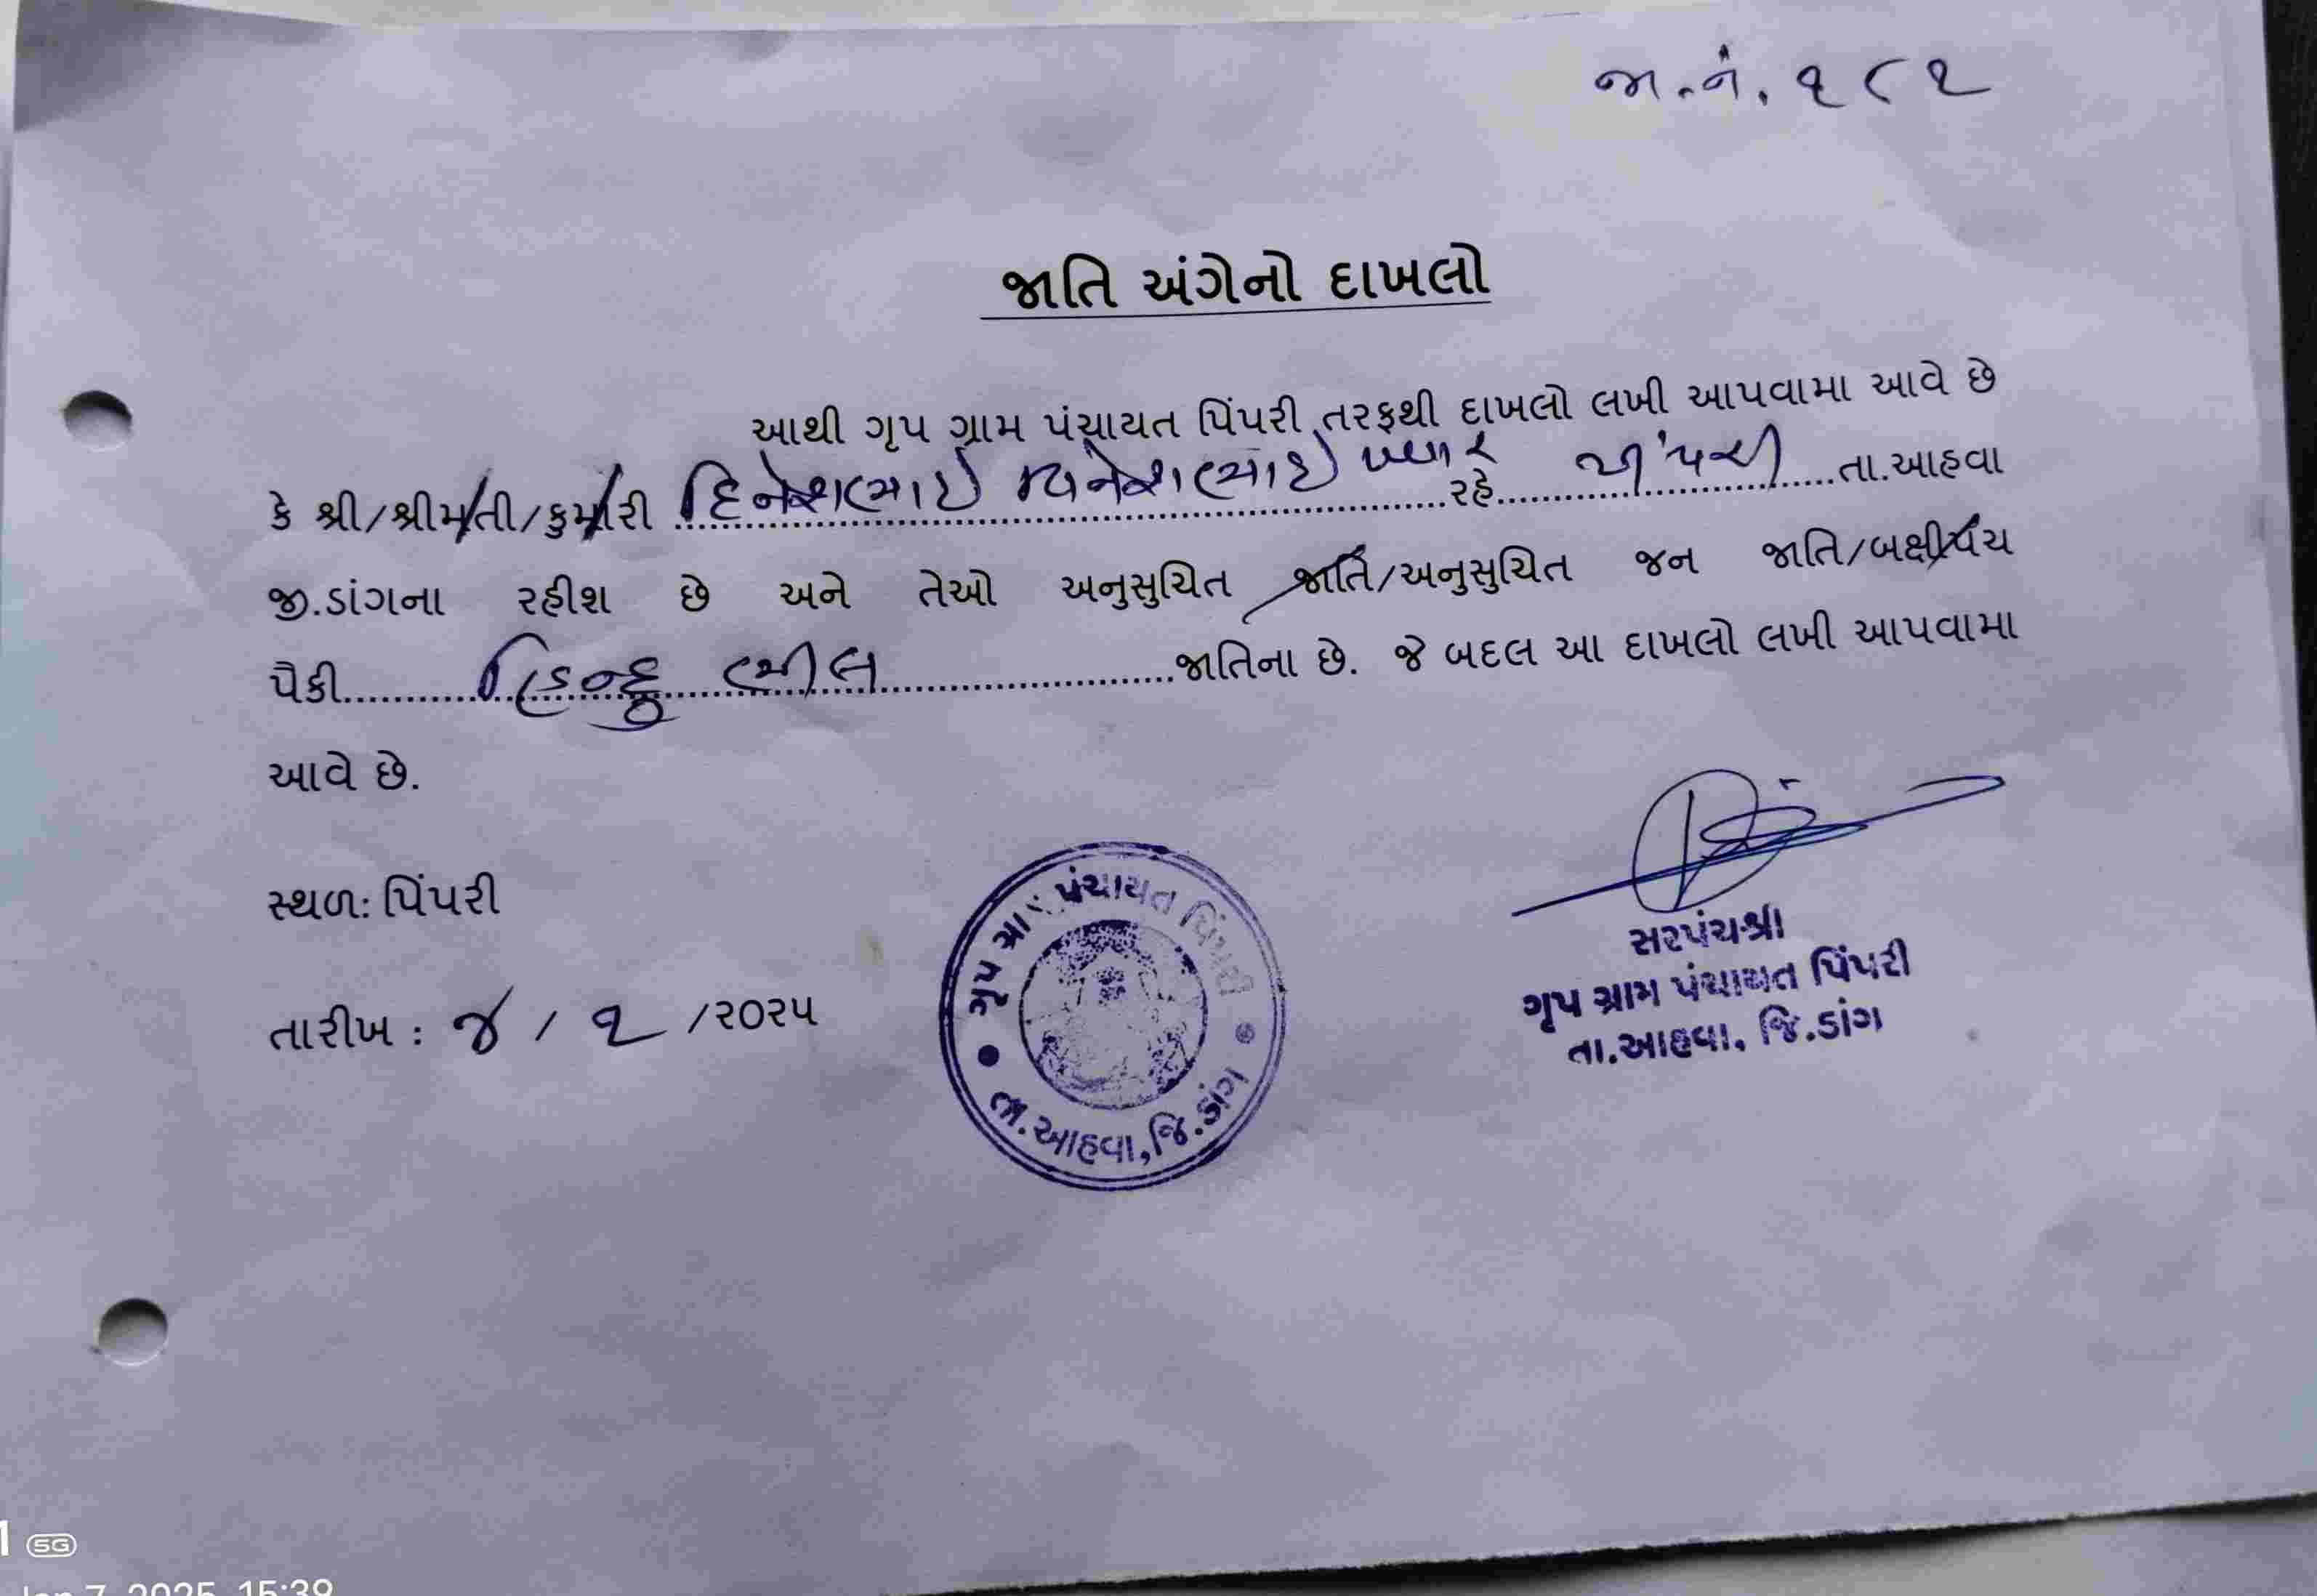 જા.નં. ૧૮૧
જાતિ અંગેનો દાખલો
આથી ગૃપ ગ્રામ પંચાયત પિંપરી તરફથી દાખલો લખી આપવામા આવે છે
કે શ્રી/શ્રીમતી/કુમારી દિનેશભાઈ મનેશભાઈ પવાર રહે પીંપરી તા.આહવા
જી.ડાંગના રહીશ છે અને તેઓ અનુસુચિત જાતિ/અનુસુચિત જન જાતિ/બક્ષીપંચ
પૈકી હિન્દુ ભીલ જાતિના છે. જે બદલ આ દાખલો લખી આપવામા
આવે છે.
સ્થળ: પિંપરી
તારીખ : ૪ / ૧ /૨૦૨૫
ગૃપ ગ્રામ પંચાયત પિંપરી
તા.આહવા, જિ.ડાંગ
સરપંચશ્રી
ગૃપ ગ્રામ પંચાયત પિંપરી
તા.આહવા, જિ.ડાંગ
5G
Jan 7, 2025, 15:39